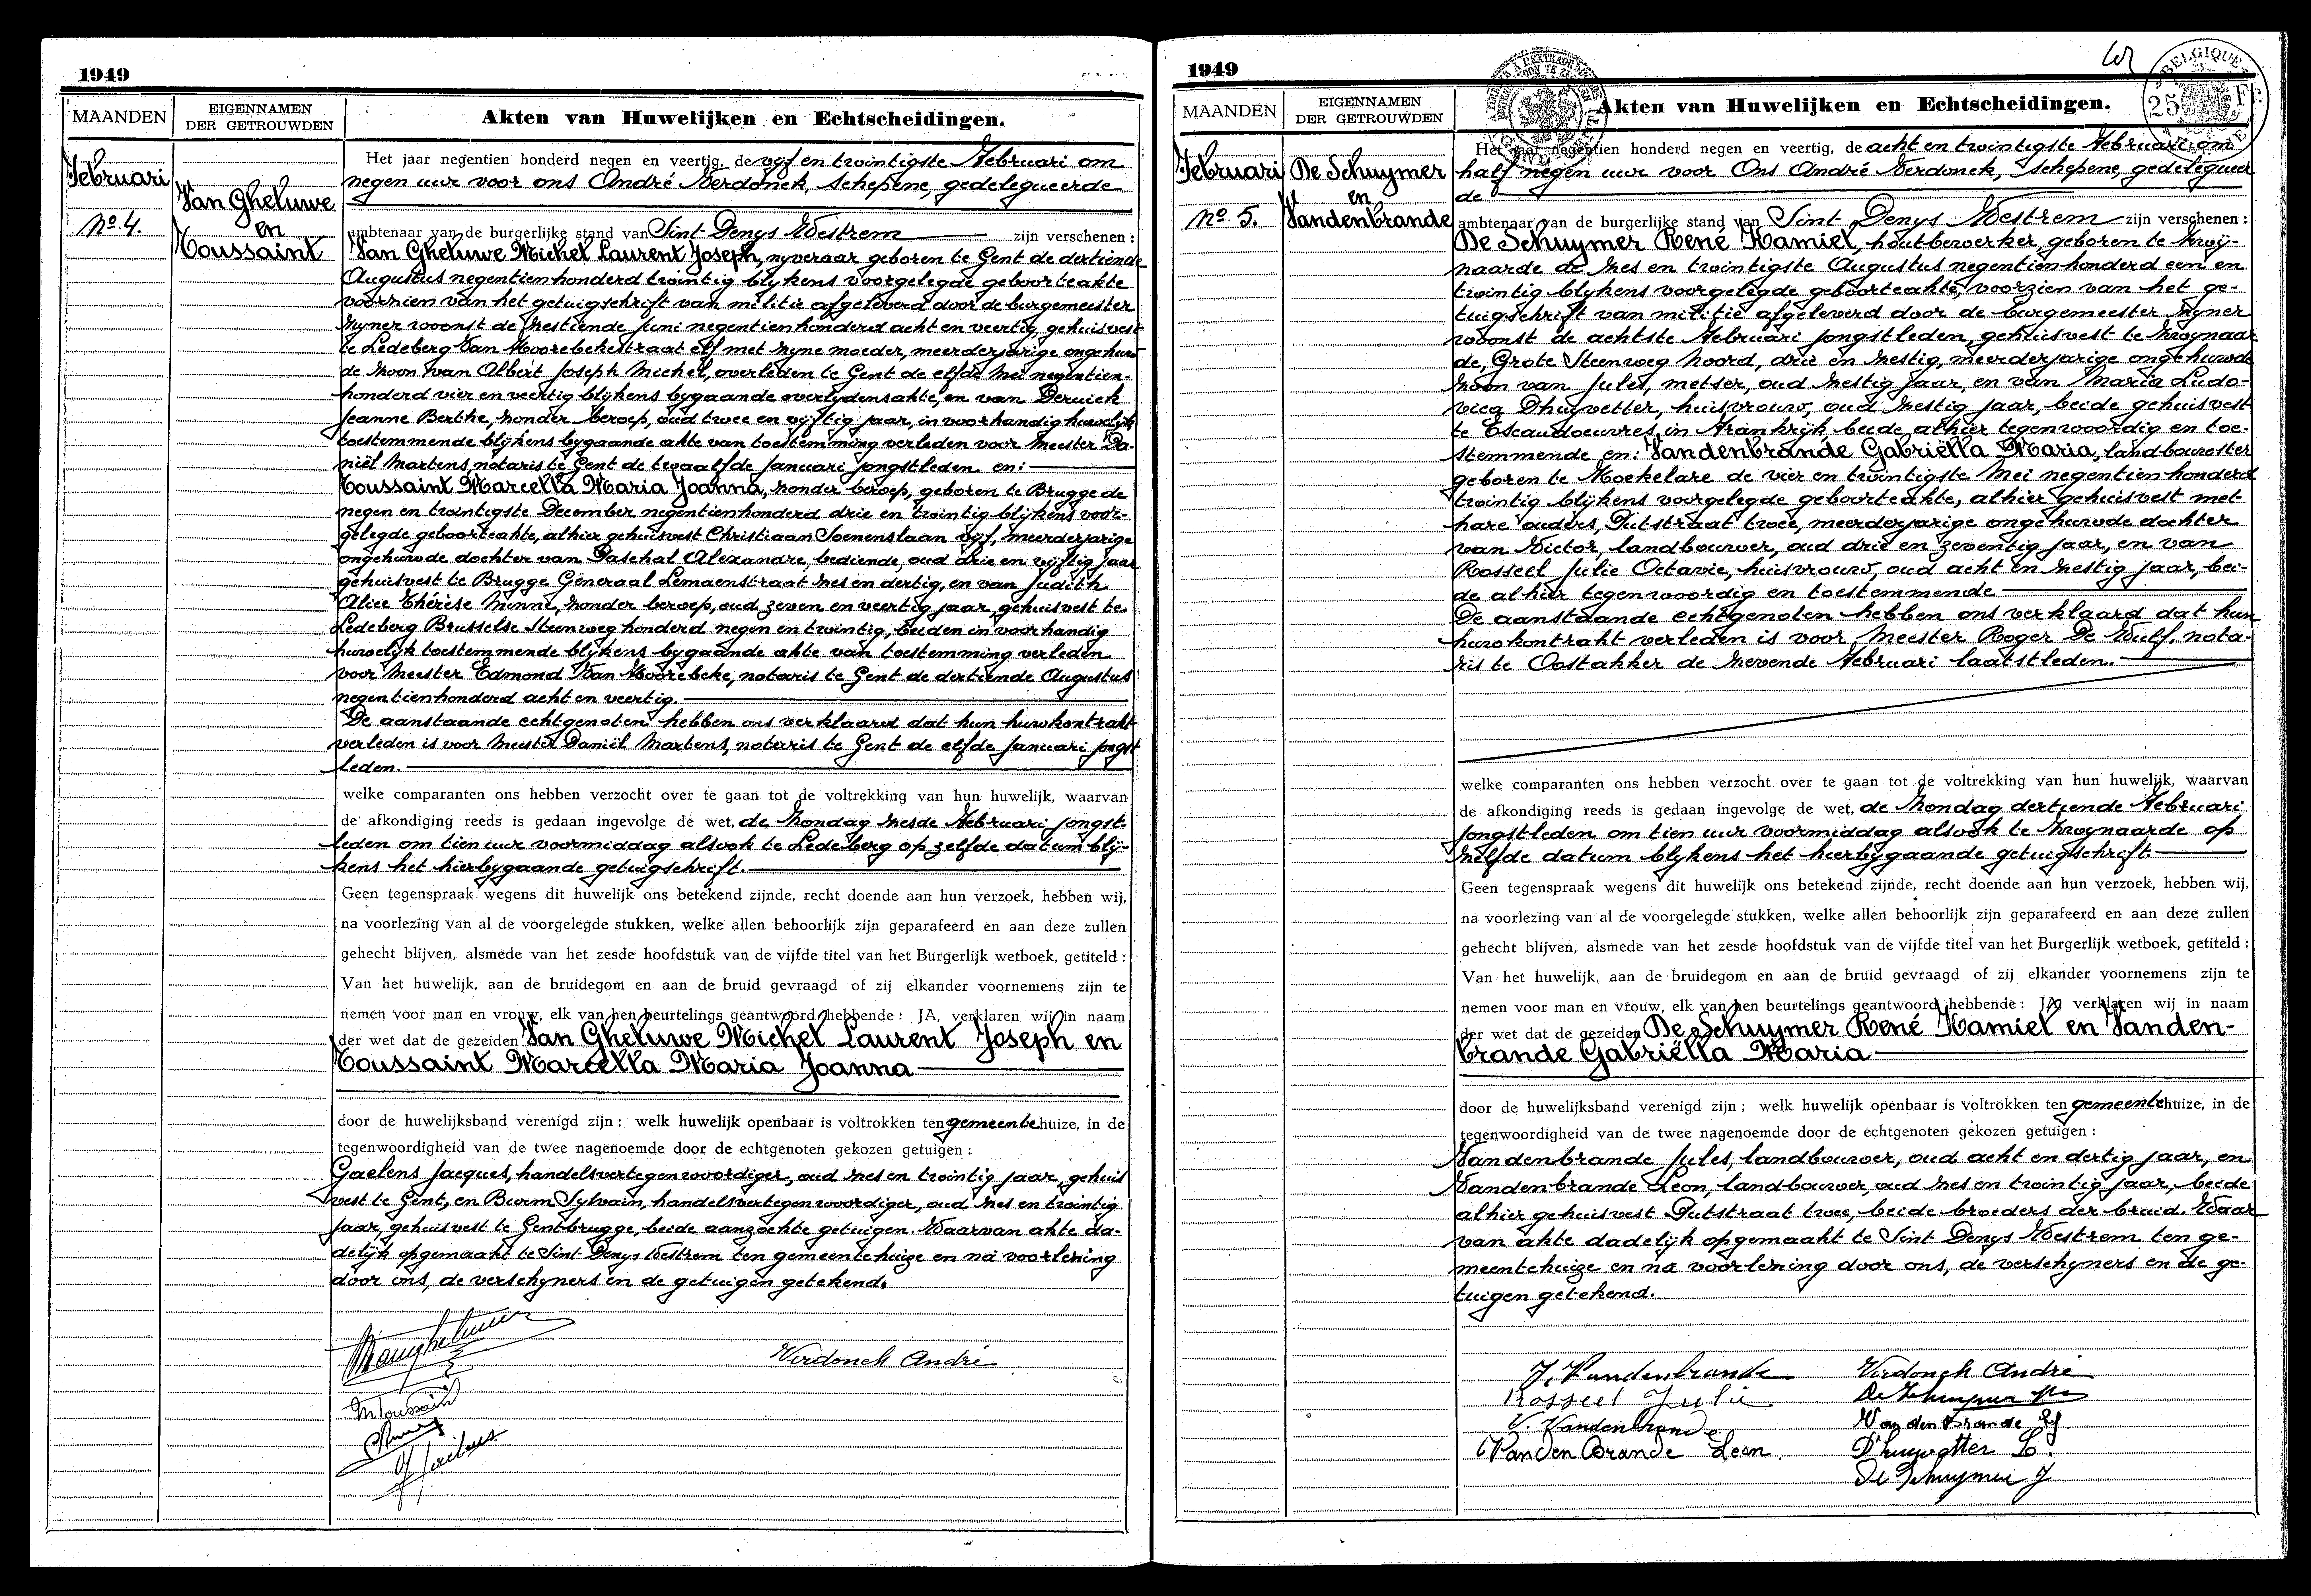 1949
MAANDEN
EIGENNAMEN
DER GETROUWDEN
Akten van Huwelijken en Echtscheidingen.
Februari
No. 4.
Van Gheluwe
en
Toussaint
Het jaar negentien honderd negen en veertig, de vyf en twintigste Februari om
negen uur voor ons André Verdonck, schepene, gedelegueerde
ambtenaar van de burgerlijke stand van Sint Denys Westrem zijn verschenen :
Van Gheluwe Michel Laurent Joseph, nyveraar geboren te Gent de dertiende
Augustus negentienhonderd twintig blykens voorgelegde geboorteakte
voorzien van het getuigschrift van militie afgeleverd door de burgemeester
zyner woonst de zestiende juni negentienhonderd acht en veertig, gehuisvest
te Ledeberg Van Hoorebekestraat elf met zyne moeder, meerderjarige ongehuw-
de zoon van Albert Joseph Michel, overleden te Gent de elfde Mei negentien-
honderd vier en veertig blykens bygaande overlydensakte, en van Deruick
Jeanne Berthe, zonder beroep, oud twee en vyftig jaar, in voorhandig huwelijk
toestemmende blijkens bygaande akte van toestemming verleden voor Meester Da-
niël Martens notaris te Gent de twaalfde Januari jongstleden en:
Toussaint Marcella Maria Joanna, zonder beroep, geboren te Brugge de
negen en twintigste December negentienhonderd drie en twintig blijkens voor-
gelegde geboorteakte, alhier gehuisvest Christiaan Soenenslaan vijf, meerderjarige
ongehuwde dochter van Paschal Alexandre, bediende, oud drie en vijftig jaar
gehuisvest te Brugge Generaal Lemaenstraat zes en dertig, en van Judith
Alice Thérèse Minne, zonder beroep, oud zeven en veertig jaar gehuisvest te
Ledeberg Brusselse Steenweg honderd negen en twintig, beiden in voorhandig
huwelijk toestemmende blykens bygaande akte van toestemming verleden
voor Meester Edmond Van Hoorebeke, notaris te Gent de dertiende Augustus
negentienhonderd acht en veertig.
De aanstaande echtgenoten hebben ons verklaard dat hun huwkontrakt
verleden is voor Meester Daniël Martens, notaris te Gent de elfde Januari jongst
leden.
welke comparanten ons hebben verzocht over te gaan tot de voltrekking van hun huwelijk, waarvan
de afkondiging reeds is gedaan ingevolge de wet, de Zondag zesde Februari jongst-
leden om tien uur voormiddag alsook te Ledeberg op zelfde datum blij-
kens het hierbygaande getuigschrift.
Geen tegenspraak wegens dit huwelijk ons betekend zijnde, recht doende aan hun verzoek, hebben wij,
na voorlezing van al de voorgelegde stukken, welke allen behoorlijk zijn geparafeerd en aan deze zullen
gehecht blijven, alsmede van het zesde hoofdstuk van de vijfde titel van het Burgerlijk wetboek, getiteld :
Van het huwelijk, aan de bruidegom en aan de bruid gevraagd of zij elkander voornemens zijn te
nemen voor man en vrouw, elk van hen beurtelings geantwoord hebbende : JA, verklaren wij in naam
der wet dat de gezeiden Van Gheluwe Michel Laurent Joseph en
Toussaint Marcella Maria Joanna
door de huwelijksband verenigd zijn ; welk huwelijk openbaar is voltrokken ten gemeentehuize, in de
tegenwoordigheid van de twee nagenoemde door de echtgenoten gekozen getuigen :
Gaelens Jacques, handelsvertegenwoordiger, oud zes en twintig jaar, gehuis
vest te Gent, en Burm Sylvain, handelsvertegenwoordiger, oud zes en twintig
jaar, gehuisvest te Gentbrugge, beide aanzochte getuigen. Waarvan akte da-
delijk opgemaakt te Sint Denys Westrem ten gemeentehuize en na voorlezing
door ons, de verschyners en de getuigen getekend.
Verdonck André
M Toussaint
1949
MAANDEN
EIGENNAMEN
DER GETROUWDEN
Akten van Huwelijken en Echtscheidingen.
BELGIQUE
25 Fr
Februari
No. 5.
De Schuymer
en
Vandenbrande
Het jaar negentien honderd negen en veertig, de acht en twintigste Februari om
half negen uur voor Ons André Verdonck, schepene, gedelegueer
de
ambtenaar van de burgerlijke stand van Sint Denys Westrem zijn verschenen :
De Schuymer René Kamiel, houtbewerker, geboren te Zwij-
naarde de zes en twintigste Augustus negentienhonderd een en
twintig blykens voorgelegde geboorteakte, voorzien van het ge-
tuigschrift van militie afgeleverd door de burgemeester zyner
woonst de achtste Februari jongstleden, gehuisvest te Zwynaar
de, Grote Steenweg Noord, drie en zestig, meerderjarige ongehuwde
zoon van Jules, metser, oud zestig jaar, en van Maria Ludo-
vica Dhuyvetter, huisvrouw, oud zestig jaar, beide gehuisvest
te Escaudoeuvres in Frankrijk beide alhier tegenwoordig en toe-
stemmende en: Vandenbrande Gabriëlla Maria, landbouwster
geboren te Moekelare de vier en twintigste Mei negentien honderd
twintig blykens voorgelegde geboorteakte, alhier gehuisvest met
hare ouders, Putstraat twee, meerderjarige ongehuwde dochter
van Victor, landbouwer, oud drie en zeventig jaar, en van
Rosseel Julie Octavie, huisvrouw, oud acht en zestig jaar, bei-
de alhier tegenwoordig en toestemmende
De aanstaande echtgenoten hebben ons verklaard dat hun
huwkontrakt verleden is voor Meester Roger De Wulf, nota-
ris te Oostakker de zevende Februari laatstleden.
welke comparanten ons hebben verzocht over te gaan tot de voltrekking van hun huwelijk, waarvan
de afkondiging reeds is gedaan ingevolge de wet, de Zondag dertiende Februari
jongstleden om tien uur voormiddag alsook te Zwynaarde op
zelfde datum blykens het hierbygaande getuigschrift.
Geen tegenspraak wegens dit huwelijk ons betekend zijnde, recht doende aan hun verzoek, hebben wij,
na voorlezing van al de voorgelegde stukken, welke allen behoorlijk zijn geparafeerd en aan deze zullen
gehecht blijven, alsmede van het zesde hoofdstuk van de vijfde titel van het Burgerlijk wetboek, getiteld :
Van het huwelijk, aan de bruidegom en aan de bruid gevraagd of zij elkander voornemens zijn te
nemen voor man en vrouw, elk van hen beurtelings geantwoord hebbende : JA, verklaren wij in naam
der wet dat de gezeiden De Schuymer René Kamiel en Vanden-
brande Gabriëlla Maria
door de huwelijksband verenigd zijn ; welk huwelijk openbaar is voltrokken ten gemeentehuize, in de
tegenwoordigheid van de twee nagenoemde door de echtgenoten gekozen getuigen :
Vandenbrande Jules, landbouwer, oud acht en dertig jaar, en
Vandenbrande Leon, landbouwer, oud zes en twintig jaar, beide
alhier gehuisvest Putstraat twee, beide broeders der bruid. Waar
van akte dadelijk opgemaakt te Sint Denys Westrem ten ge-
meentehuize en na voorlezing door ons, de verschyners en de ge-
tuigen getekend.
J. Vandenbrande Verdonck André
Rosseel Julie De Schuymer
V. Vandenbrande Vandenbrande G.
VandenBrande Leon D'huyvetter L.
De Schuymer J